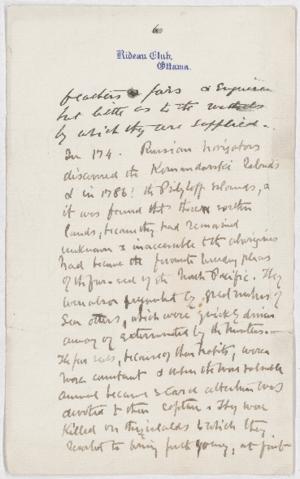 6
Rideau Club,
Ottawa.
feathers & furs & enquiries
but little as to the methods
by which they are supplied.
In 174 . Russian navigators
discovered the Komandorski Islands
& in 1786 the Pribyloff Islands, &
it was found that these
lands, because they had remained
unknown & inaccessible to the aborigines
had become the favourite breeding places
of the fur seal of the North Pacific. They
were also frequented by great numbers of
Sea otters, which were quickly driven
away or exterminated by the hunters.
The fur seals, because of their habits, were
more constant & when the more valuable
animal became scarce attention was
devoted to their capture. They were
killed on the islands to which they
resorted to bring forth young, at first